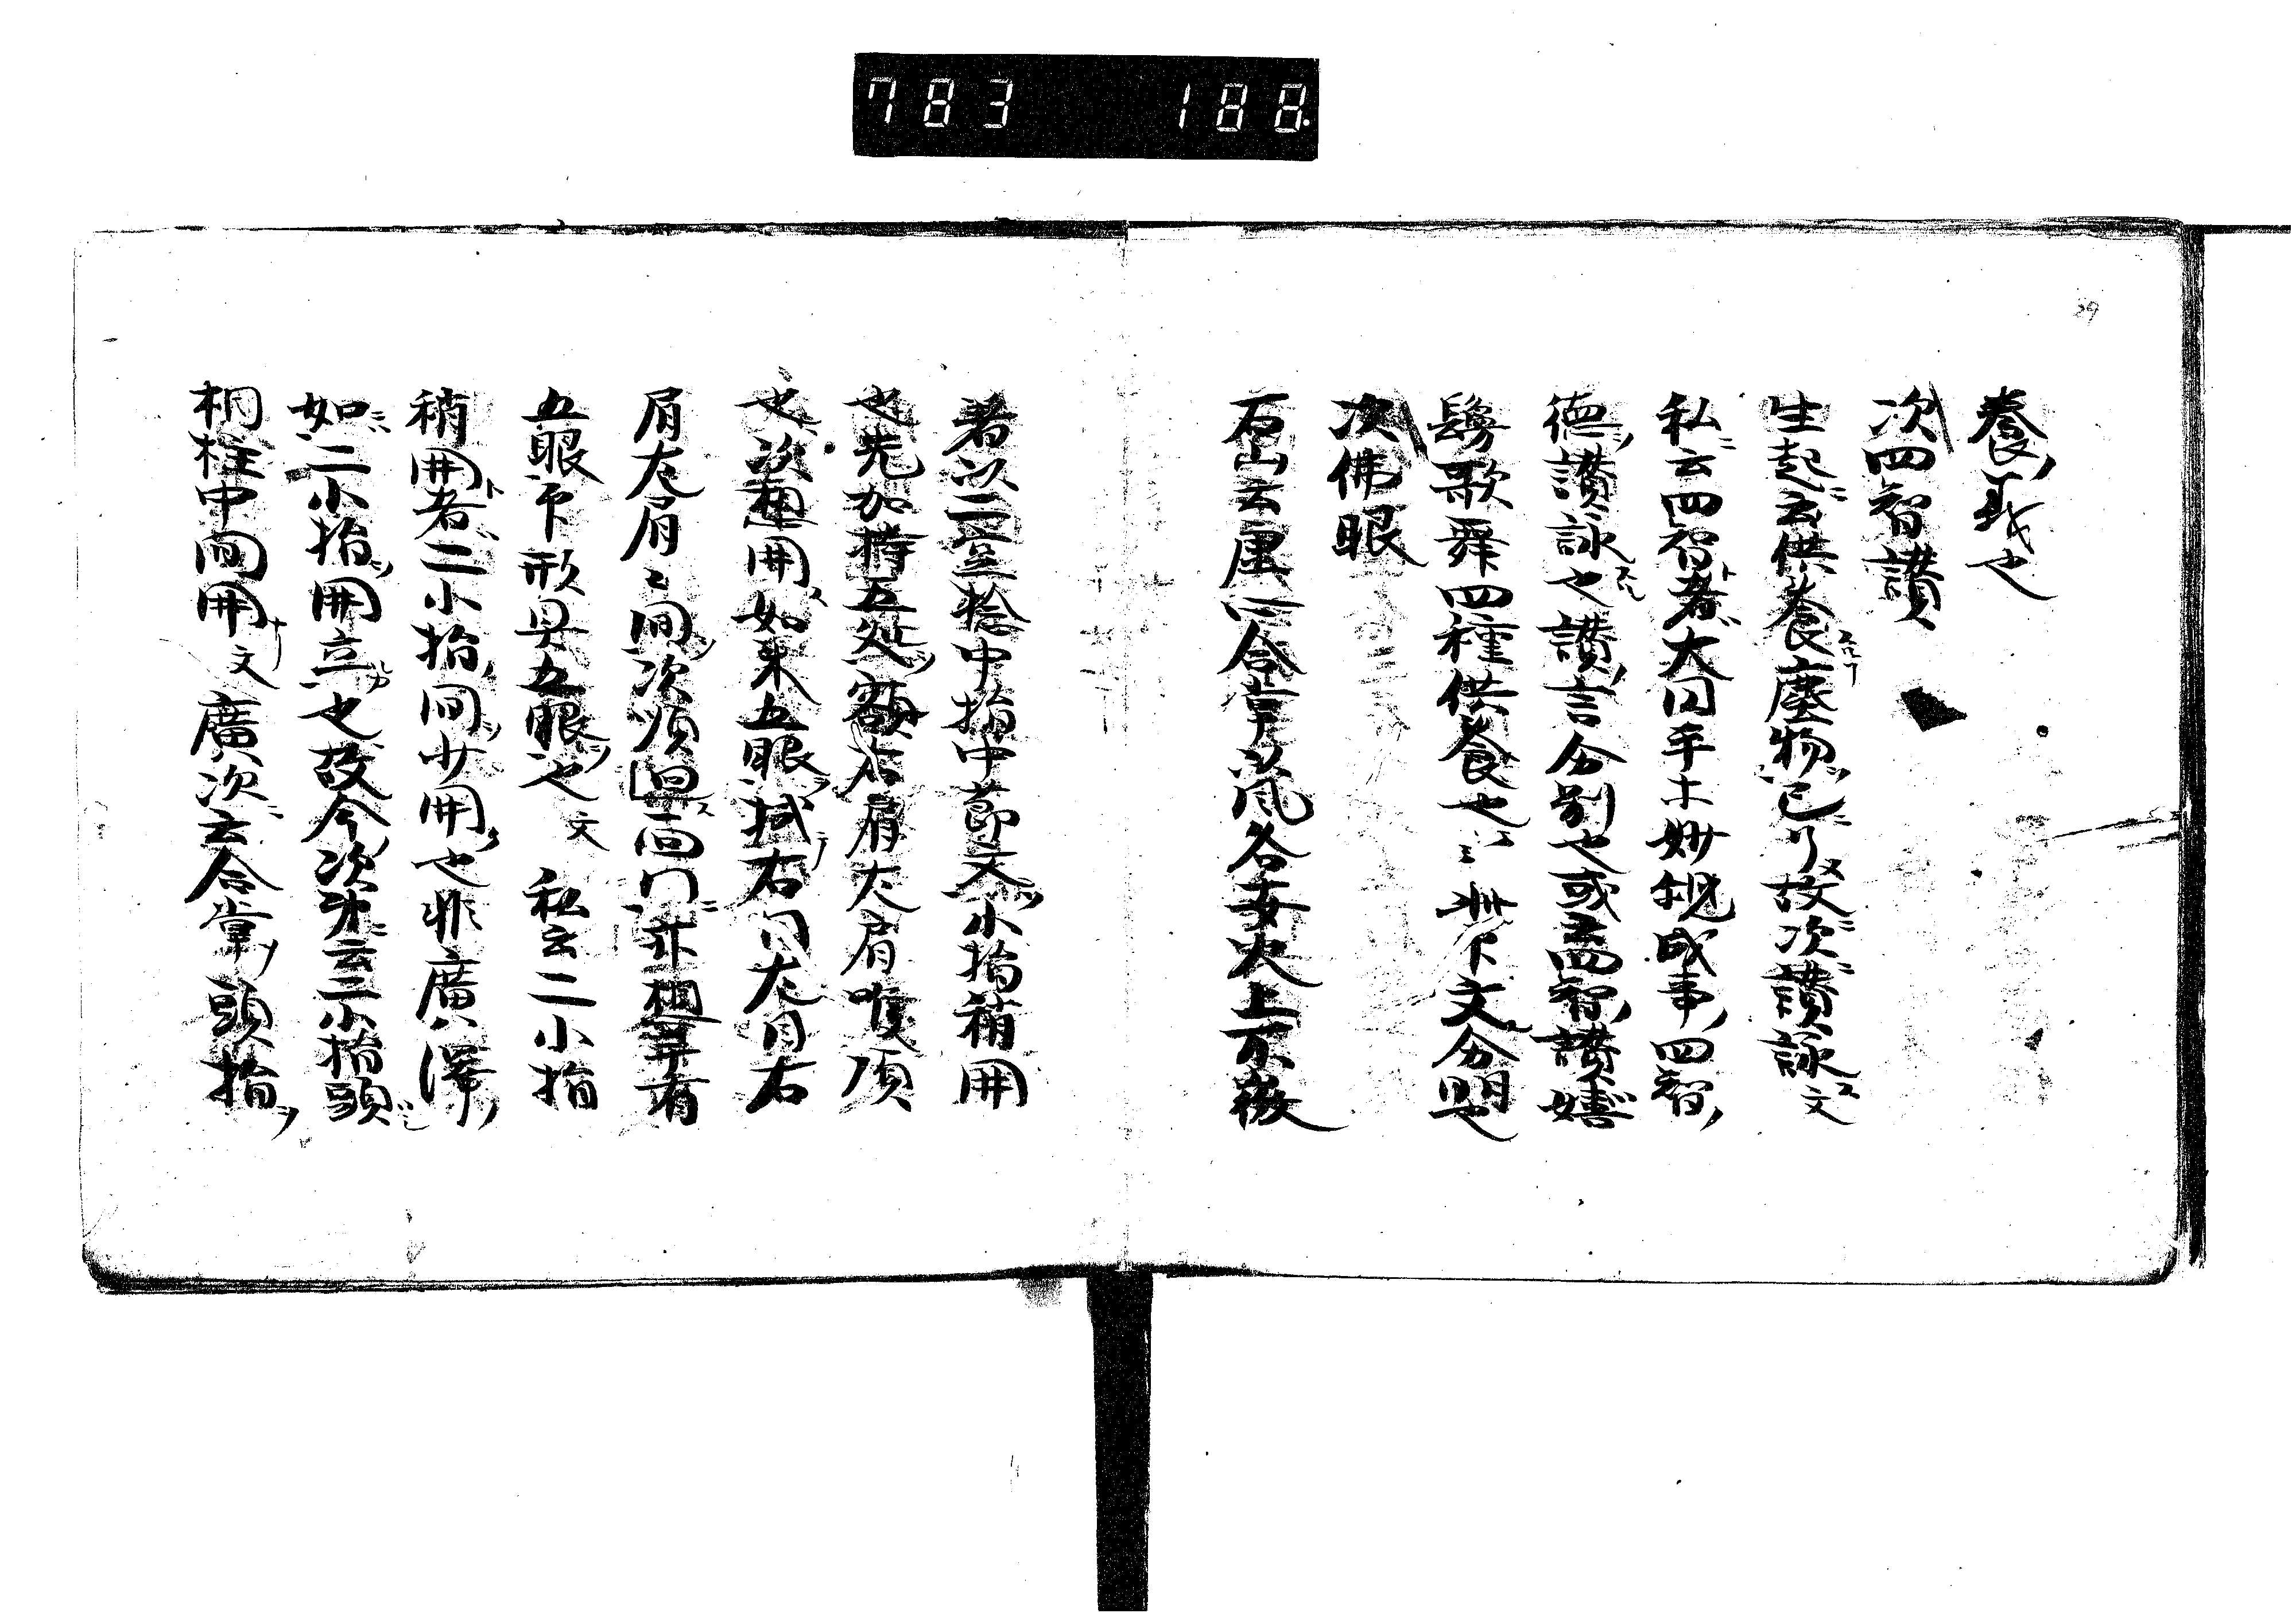 783 188
29
養義也
次四智讃
生起云供養塵物已了故次讃詠文
私云四智者大円平等妙観成事四智
徳讃詠也讃言分別也或面智讃嬉
鬘歌舞四種供養也云云此下文分明也
次佛眼
石山云虚心合掌以風各安火上不微
著以二空捻中指中節文小指稍開
也先加持五処額右肩左肩喉頂
也次想開如来五眼拭右目左目右
肩左肩々間次頂是面門亦想并有
五眼下形具五眼也文 私云二小指
稍開者二小指間少開也非廣澤
如二小指開立也故今次第云二小指頭
相柱中間開文 廣次云合掌頭指